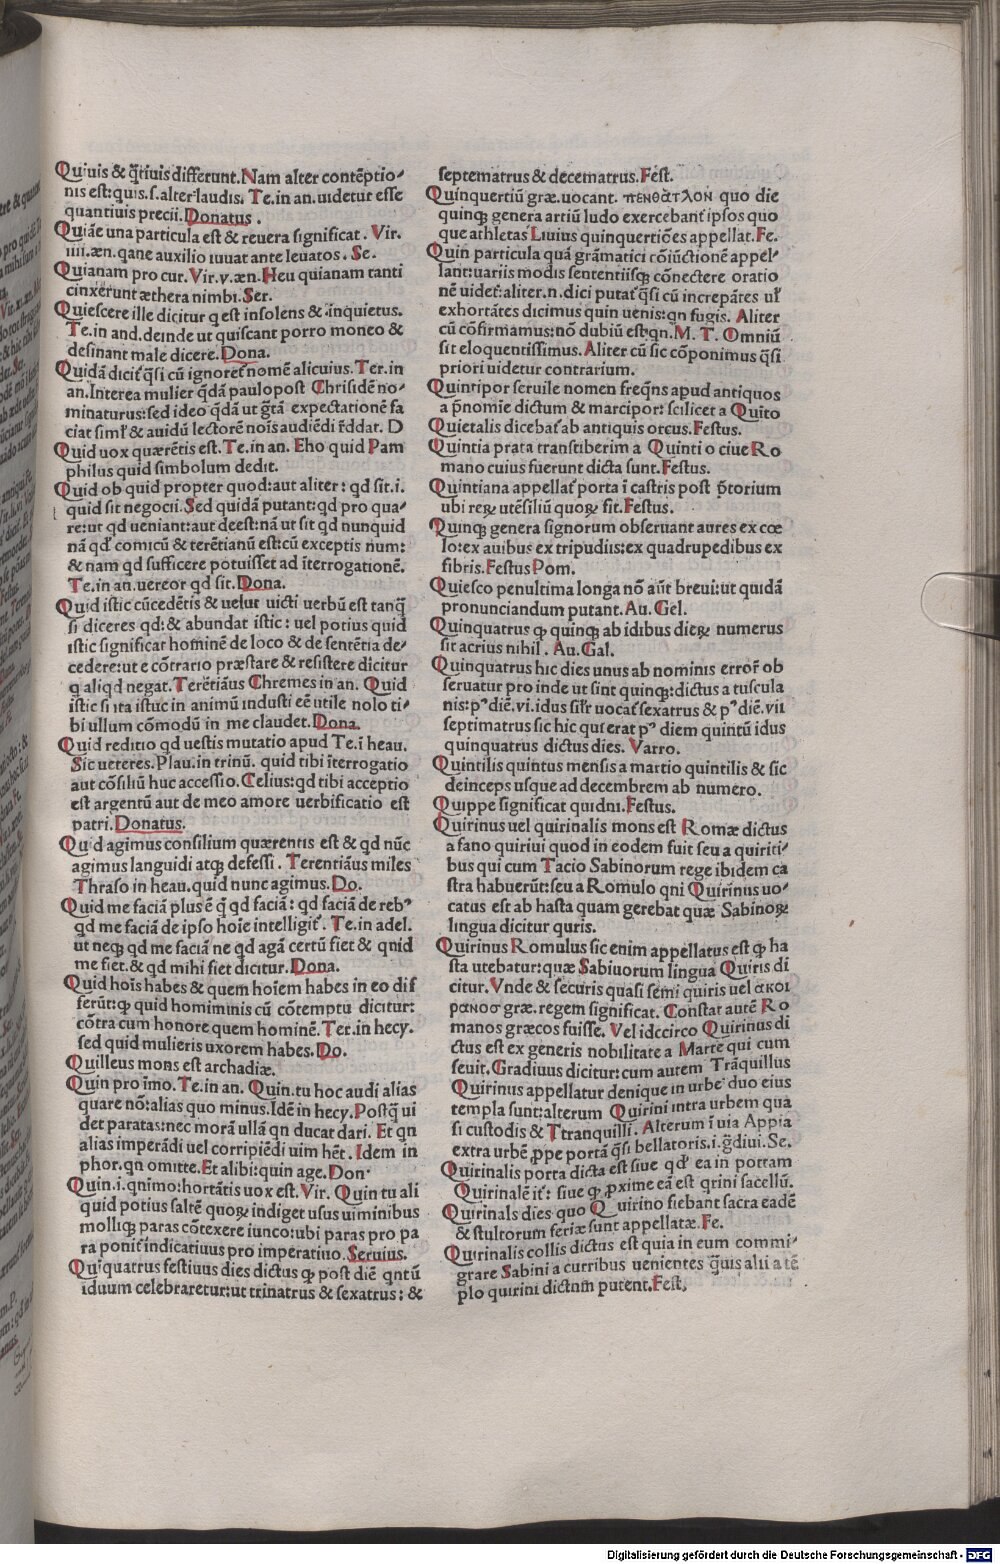 Quiuis & q̃tiuis differunt. Nam alter contẽptio⸗
nis est: quis. s. alter laudis. Te. in an. uidetur esse
quantiuis precii. Donatus.
Quiãe una particula est & reuera significat. Vir.
iiii. æn. qane auxilio iuuat ante leuatos. Se.
Quianam pro cur. Vir. v. æn. Heu quianam tanti
cinxerunt æthera nimbi. Ser.
Quiescere ille dicitur q est insolens & inquietus.
Te. in and. deinde ut quiscant porro moneo &
desinant male dicere. Dona.
Quidã dicit̃ q̃si cũ ignoret̃ nomẽ alicuius. Ter. in
an. Interea mulier q̃dã paulopost Chrisidẽ no⸗
minaturus: sed ideo q̃dã ut g̃tã expectationẽ fa
ciat simĺ & auidũ lectorẽ nois̃ audiẽdi r̃ddat. D
Quid uox quærẽtis est. Te. in an. Eho quid Pam
philus quid simbolum dedit.
Quid ob quid propter quod: aut aliter: qd sit. i.
quid sit negocii. Sed quidã putant: qd pro qua⸗
re: ut qd ueniant: aut deest: nã ut sit qd nunquid
nã qd̃ comicũ & terẽtianũ est: cũ exceptis num:
& nam qd sufficere potuisset ad ĩterrogationẽ.
Te. in an. uereor qd sit. Dona.
Quid istic cũcedẽtis & uelut uicti uerbũ est tanq̃
si diceres qd: & abundat istic: uel potius quid
istic significat hominẽ de loco & de sentẽtia de⸗
cedere: ut e cõtrario præstare & resistere dicitur
q aliqd negat. Terẽtiãus Chremes in an. Quid
istic si ita istuc in animũ industi eẽ utile nolo ti⸗
bi ullum cõmodũ in me claudet. Dona.
Quid reditio qd uestis mutatio apud Te. ĩ heau.
Sic ueteres. Plau. in trinũ. quid tibi ĩterrogatio
aut cõsiliũ huc accessio. Celius: qd tibi acceptio
est argentũ aut de meo amore uerbificatio est
patri. Donatus.
Quid agimus consilium quærentis est & qd nũc
agimus languidi atq; defessi. Terentiãus miles
Thraso in heau. quid nunc agimus. Do.
Quid me faciã plus ẽ q̃ qd faciã: qd faciã de reb⁹
qd me faciã de ipso hoie intelligit̃. Te. in adel.
ut neq; qd me faciã ne qd agã certũ fiet & qnid
me fiet. & qd mihi fiet dicitur. Dona.
Quid hois̃ habes & quem hoiem habes in eo dif
ferũt: q̧ quid hominis cũ cõtemptu dicitur:
cõtra cum honore quem hominẽ. Ter. in hecy.
sed quid mulieris uxorem habes. Do.
Quilleus mons est archadiæ.
Quin pro imo. Te. in an. Quin. tu hoc audi alias
quare nõ: alias quo minus. Idẽ in hecy. Postq̃ ui
det paratas: nec morã ullã qn ducat dari. Et qn
alias imperãdi uel corripiẽdi uim hẽt. Idem in
phor. qn omitte. Et alibi: quin age. Don
Quin. i. qnimo: hortãtis uox est. Vir. Quin tu ali
quid potius saltẽ quoꝝ indiget usus uiminibus
molliq; paras cõtexere iunco: ubi paras pro pa
ra ponit̃ indicatiuus pro imperatiuo. Seruius.
Quiquatrus festiuus dies dictus q̧ post diẽ qntũ
iduum celebraretur: ut trinatrus & sexatrus: &
septematrus & decematrus. Fest.
Quinquertiũ græ. uocant. πενθατλον quo die
quinq; genera artiũ ludo exercebant̃ ipsos quo
que athletas Liuius quinquertiões appellat. Fe.
Quin particula quã grãmatici cõiũctionẽ appel⸗
lant: uariis modis sententiisq; cõnectere oratio
nẽ uidet̃: aliter. n. dici putat̃ q̃si cũ increpãtes uĺ
exhortãtes dicimus quin uenis: qn fugis. Aliter
cũ cõfirmamus: nõ dubiũ est: qn. M. T. Omniũ
sit eloquentissimus. Aliter cũ sic cõponimus q̃si
priori uidetur contrarium.
Quintipor seruile nomen freq̃ns apud antiquos
a p̃nomie dictum & marcipor: scilicet a Quito
Quietalis dicebat̃ ab antiquis orcus. Festus.
Quintia prata transtiberim a Quinti o ciue Ro
mano cuius fuerunt dicta sunt. Festus.
Quintiana appellat̃ porta ĩ castris post p̃torium
ubi reꝝ utẽsiliũ quoꝝ sit. Festus.
Quinq; genera signorum obseruant aures ex cœ
lo: ex auibus ex tripudiis: ex quadrupedibus ex
fibris. Festus Pom.
Quiesco penultima longa nõ aũt breui: ut quidã
pronunciandum putant. Au. Gel.
Quinquatrus q̧ quinq; ab idibus dieꝝ numerus
sit acrius nihil. Au. Gal.
Quinquatrus hic dies unus ab nominis error̃ ob
seruatur pro inde ut sint quinq;: dictus a tuscula
nis: p⁹ diẽ. vi. idus siĺr uocat̃ sexatrus & p⁹ diẽ. vii
septimatrus sic hic qui erat p⁹ diem quintũ idus
quinquatrus dictus dies. Varro.
Quintilis quintus mensis a martio quintilis & sic
deinceps usque ad decembrem ab numero.
Quippe significat quidni. Festus.
Quirinus uel quirinalis mons est Romæ dictus
a fano quiriui quod in eodem fuit seu a quiriti⸗
bus qui cum Tacio Sabinorum rege ibidem ca
stra habuerũt: seu a Romulo qni Quirinus uo⸗
catus est ab hasta quam gerebat quæ Sabinoꝝ
lingua dicitur quris.
Quirinus Romulus sic enim appellatus est q̧ ha
sta utebatur: quæ Sabiuorum lingua Quiris di
citur. Vnde & securis quasi semi quiris uel ακοι
ρανοσ græ. regem significat. Constat autẽ Ro
manos græcos fuisse. Vel idccirco Quirinus di
ctus est ex generis nobilitate a Marte qui cum
seuit. Gradiuus dicitur: cum autem Trãquillus
Quirinus appellatur denique in urbe duo eius
templa sunt: alterum Quirini intra urbem qua
si custodis & Ttranquilli. Alterum ĩ uia Appia
extra urbẽ ꝓpe portã q̃si bellatoris. i. g̃diui. Se.
Quirinalis porta dicta est siue qd̃ ea in portam
Quirinalẽ it̃: siue q̧ ꝓxime eã est qrini sacellũ.
Quirinals dies quo Quirino fiebant sacra eadẽ
& stultorum feriæ sunt appellatæ. Fe.
Quirinalis collis dictus est quia in eum commi⸗
grare Sabini a curribus uenientes q̃uis alii a tẽ
plo quirini dictam putent. Fest.
Digitalisierung gefördert durch die Deutsche Forschungsgemeinschaft - DFG